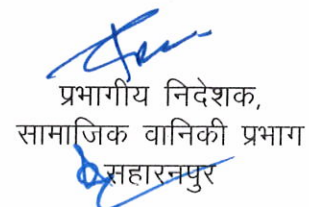 प्रभागीय निदेशक,
सामाजिक वानिकी प्रभाग
सहारनपुर